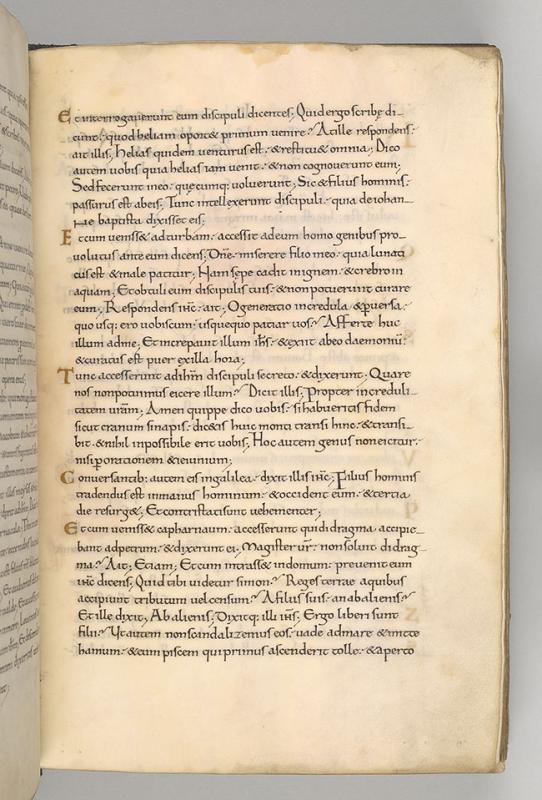 Et interrogauerunt eum discipuli dicentes; Quid ergo scribę di-
cunt. quod heliam oport& primum uenire? At ille respondens.
ait illis; Helias quidem uenturus est. & restitu& omnia; Dico
autem uobis quia helias iam uenit. & non cognouerunt eum;
Sed fecerunt in eo. quęcumq; uoluerunt; Sic & filius hominis.
passurus est ab eis; Tunc intellexerunt discipuli. quia de iohan-
ne baptista dixisset eis;
Et cumueniss& ad turbam. accessit ad eum homo genibus pro-
uolutus ante eum dicens; Dñe. miserere filio meo. quia lunati
cus est & male patitur; Nam sepe cadit in ignem. & crebro in
aquam; Et obtuli eum discipulis tuis. & non potuerunt curare
eum; Respondens ihc. ait; O generatio incredula & puersa.
quo usq; ero uobiscum. usquequo patiar uos? Afferte huc
illum ad me; Et increpauit illum ihs. & exiit ab eo daemoniū.
& curatus est puer ex illa hora;
Tunc accesserunt ad ihm discipuli secreto. & dixerunt; Quare
nos non potuimus eicere illum? Dicit illis; Propter increduli-
tatem uram; Amen quippe dico uobis. si habueritis fidem
sicut granum sinapis. dic&is huic monti transi hinc. & transi-
bit. & nihil inpossibile erit uobis; Hoc autem genus non eicitur.
nisi p orationem & ieiunium;
Conuersantib; autem eis in galilea. dixit illis ihc; Filius hominis
tradendus est in manus hominum. & occident eum. & tertia
die resurg&; Et contristati sunt uehementer;
Et cum ueniss& capharnaum. accesserunt qui didragma accipie-
bant ad petrum. & dixerunt ei; Magister ur. non soluit didrag-
ma? Ait; Etiam; Et cum intrass& in domum. preuenit eum
ihc dicens; Quid tibi uidetur simon? Reges terrae a quibus
accipiunt tributum uel censum? A filiis suis. an ab alienis?
Et ille dixit; Ab alienis; Dixitq; illi ihs; Ergo liberi sunt
filii? Ut autem non scandalizemus eos. uade ad mare & mitte
hamum. & eum piscem qui primus ascenderit tolle. & aperto